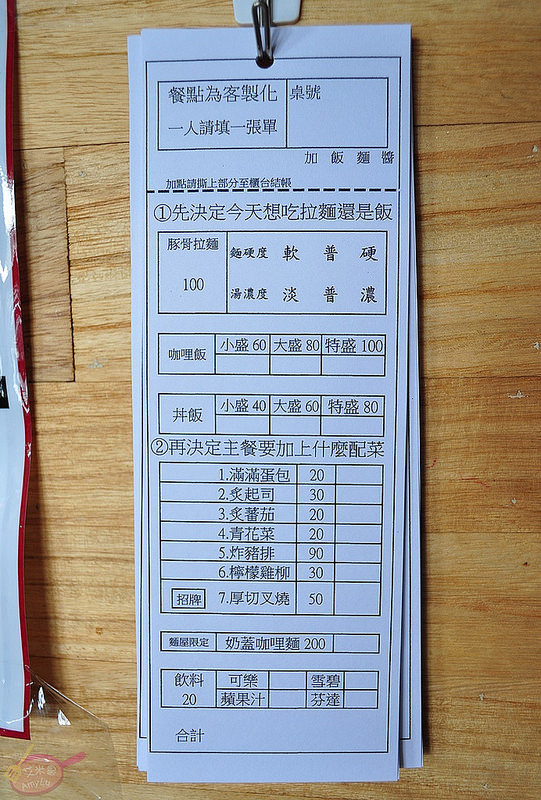 餐點為客製化 桌號
一人請填一張單
加 飯 麵 醬
加點請撕上部分至櫃台結帳
①先決定今天想吃拉麵還是飯
豚骨拉麵 麵硬度 軟 普 硬
100
湯濃度 淡 普 濃
咖哩飯 小盛60 大盛80 特盛100
丼飯 小盛40 大盛60 特盛80
②再決定主餐要加上什麼配菜
1.滿滿蛋包 20
2.炙起司 30
3.炙蕃茄 20
4.青花菜 20
5.炸豬排 90
6.檸檬雞柳 30
招牌 7.厚切叉燒 50
麵屋限定 奶蓋咖哩麵 200
飲料 可樂 雪碧
20 蘋果汁 芬達
合計
AmyLu